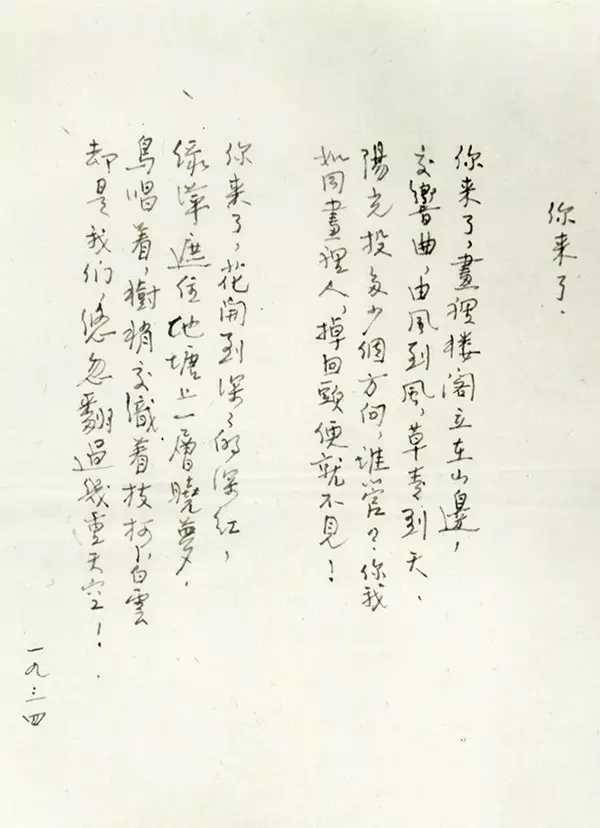 你来了.
你来了,畫裡楼阁立在山邊,
交響曲,由風到風,草青到天.
陽光投多少個方向,誰管?你我
如同畫裡人,掉回頭便就不見!
你来了,花開到深〻的深红,
绿萍遮住池塘上一層曉夢.
鳥唱着,樹梢交織着枝柯,白雲
却是我们,悠忽翻過幾重天空!
一九三四